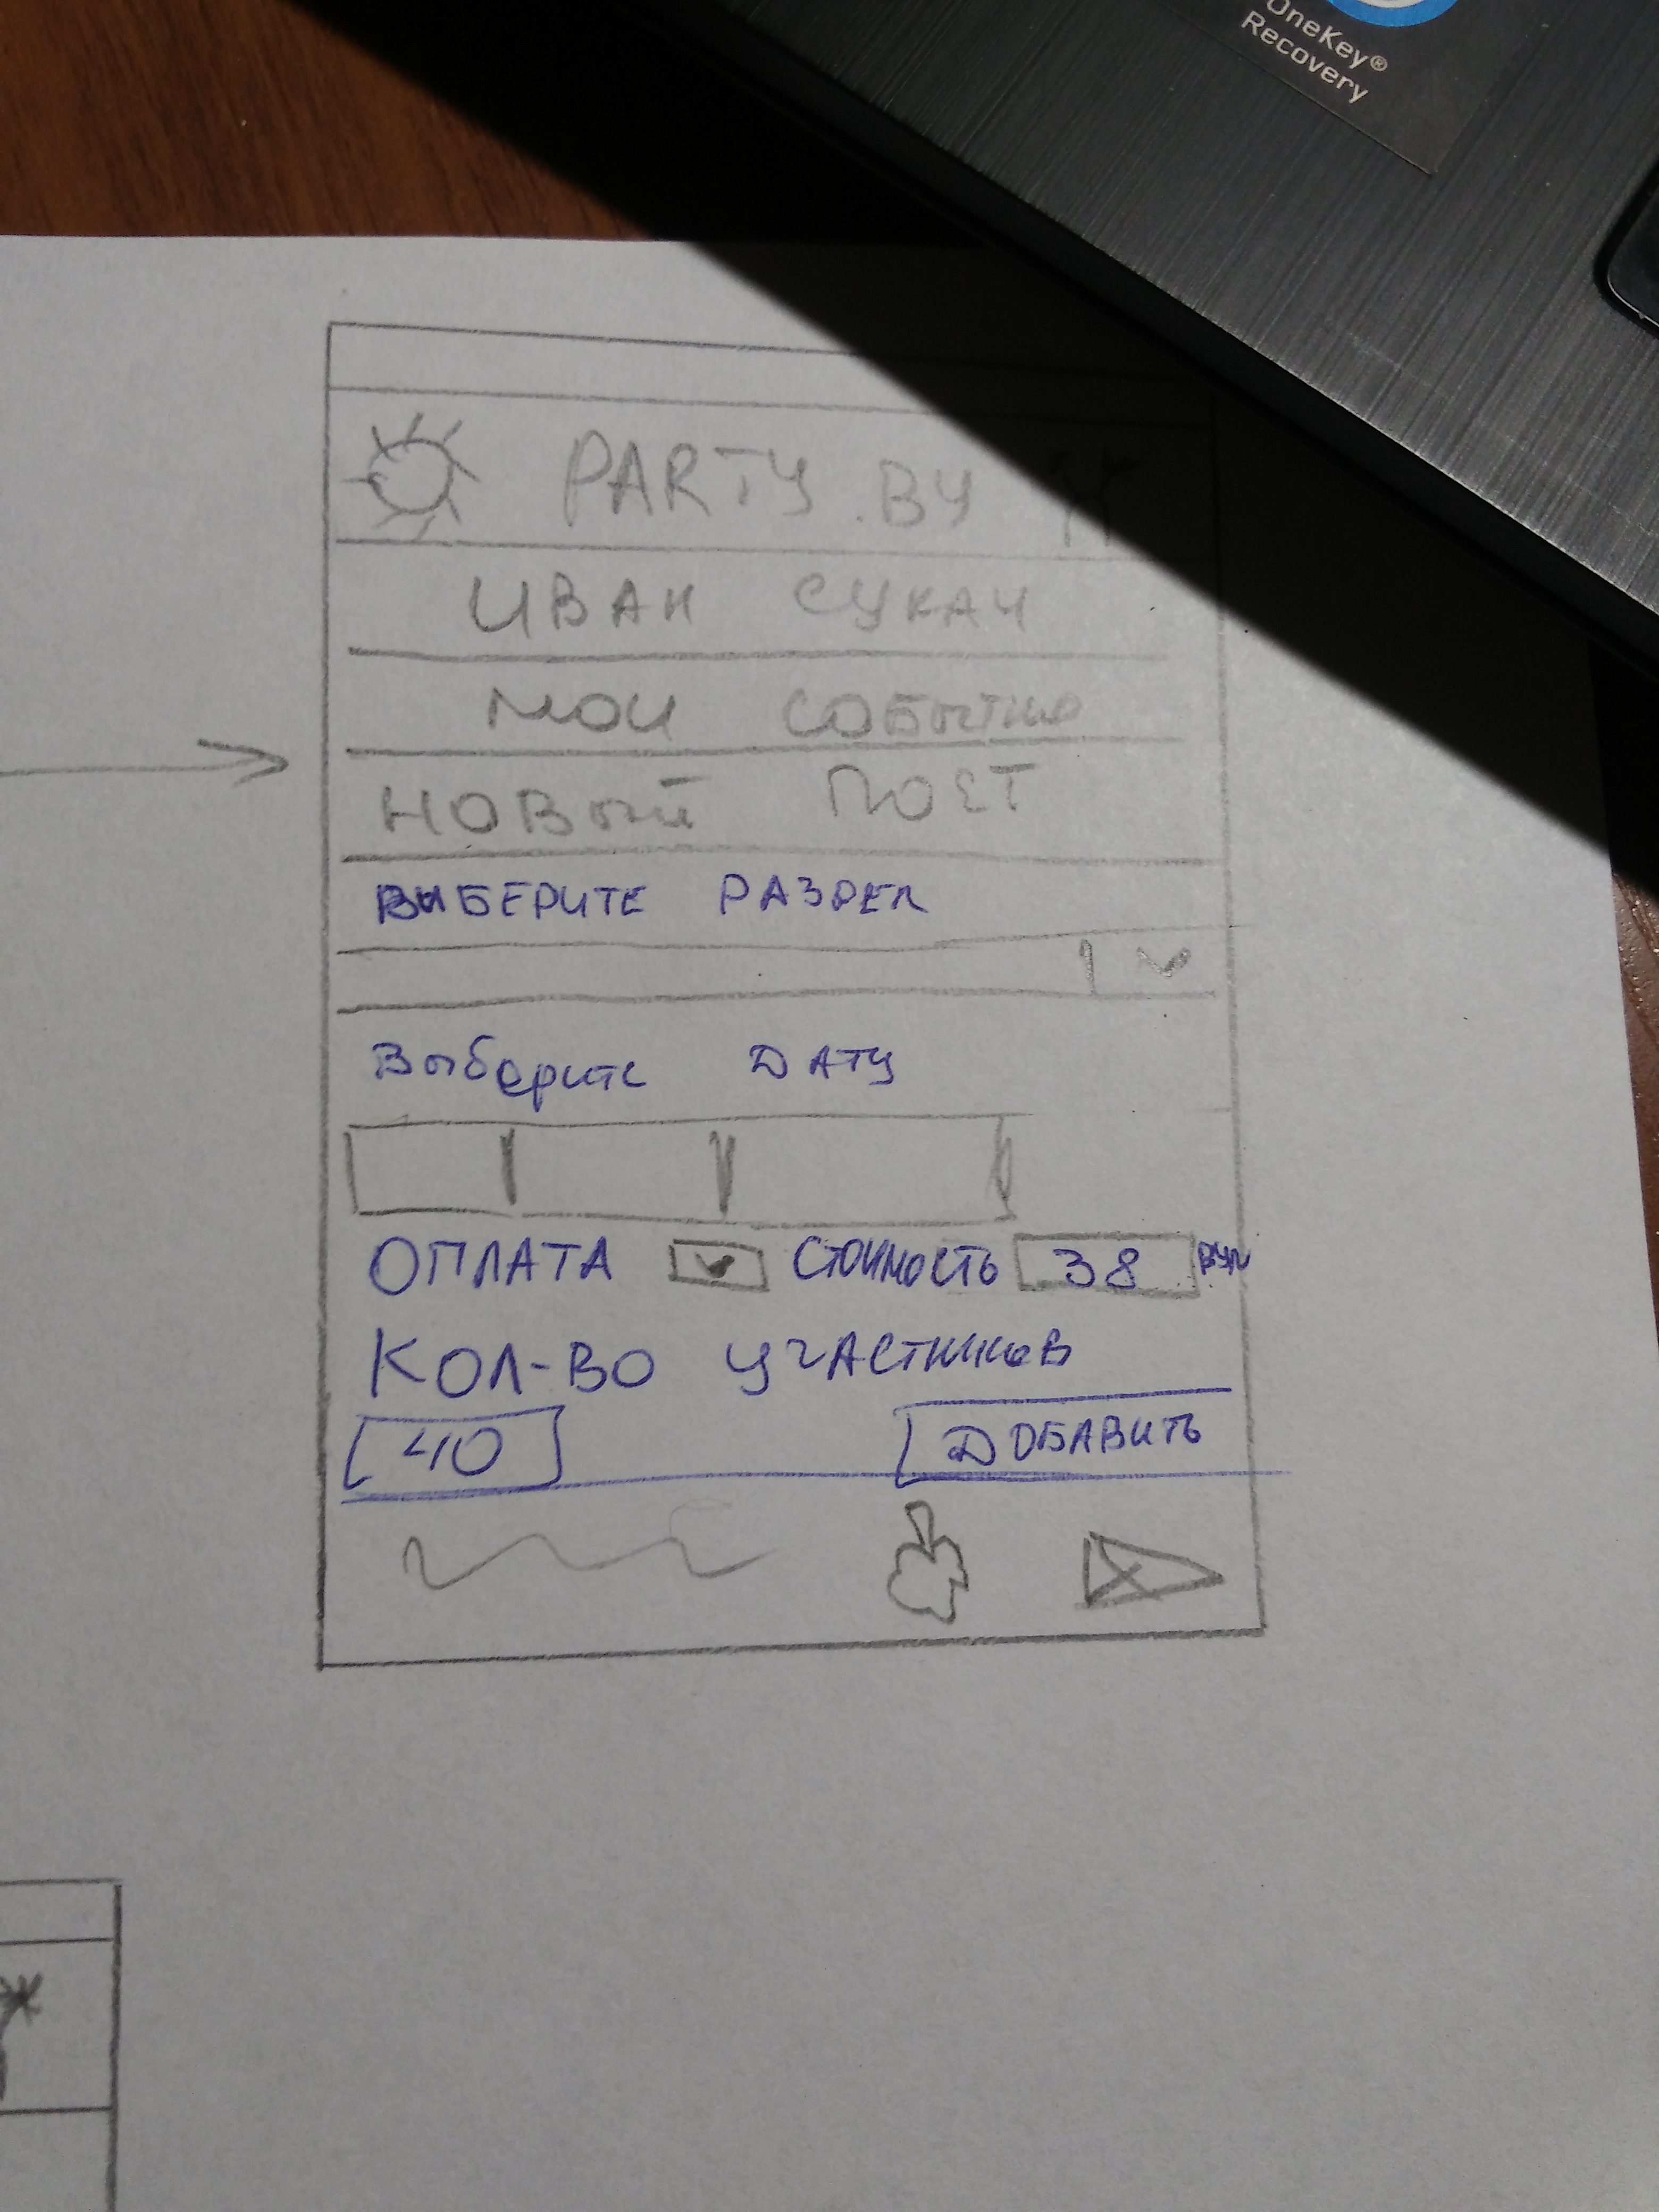 OneKey®
Recovery
PARTY.BY
ИВАН СУКАЧ
МОИ СОБЫТИЯ
НОВЫЙ ПОСТ
ВЫБЕРИТЕ РАЗДЕЛ
Выберите ДАТУ
ОПЛАТА СТОИМОСТЬ 38 BYN
КОЛ-ВО УЧАСТНИКОВ
40 ДОБАВИТЬ